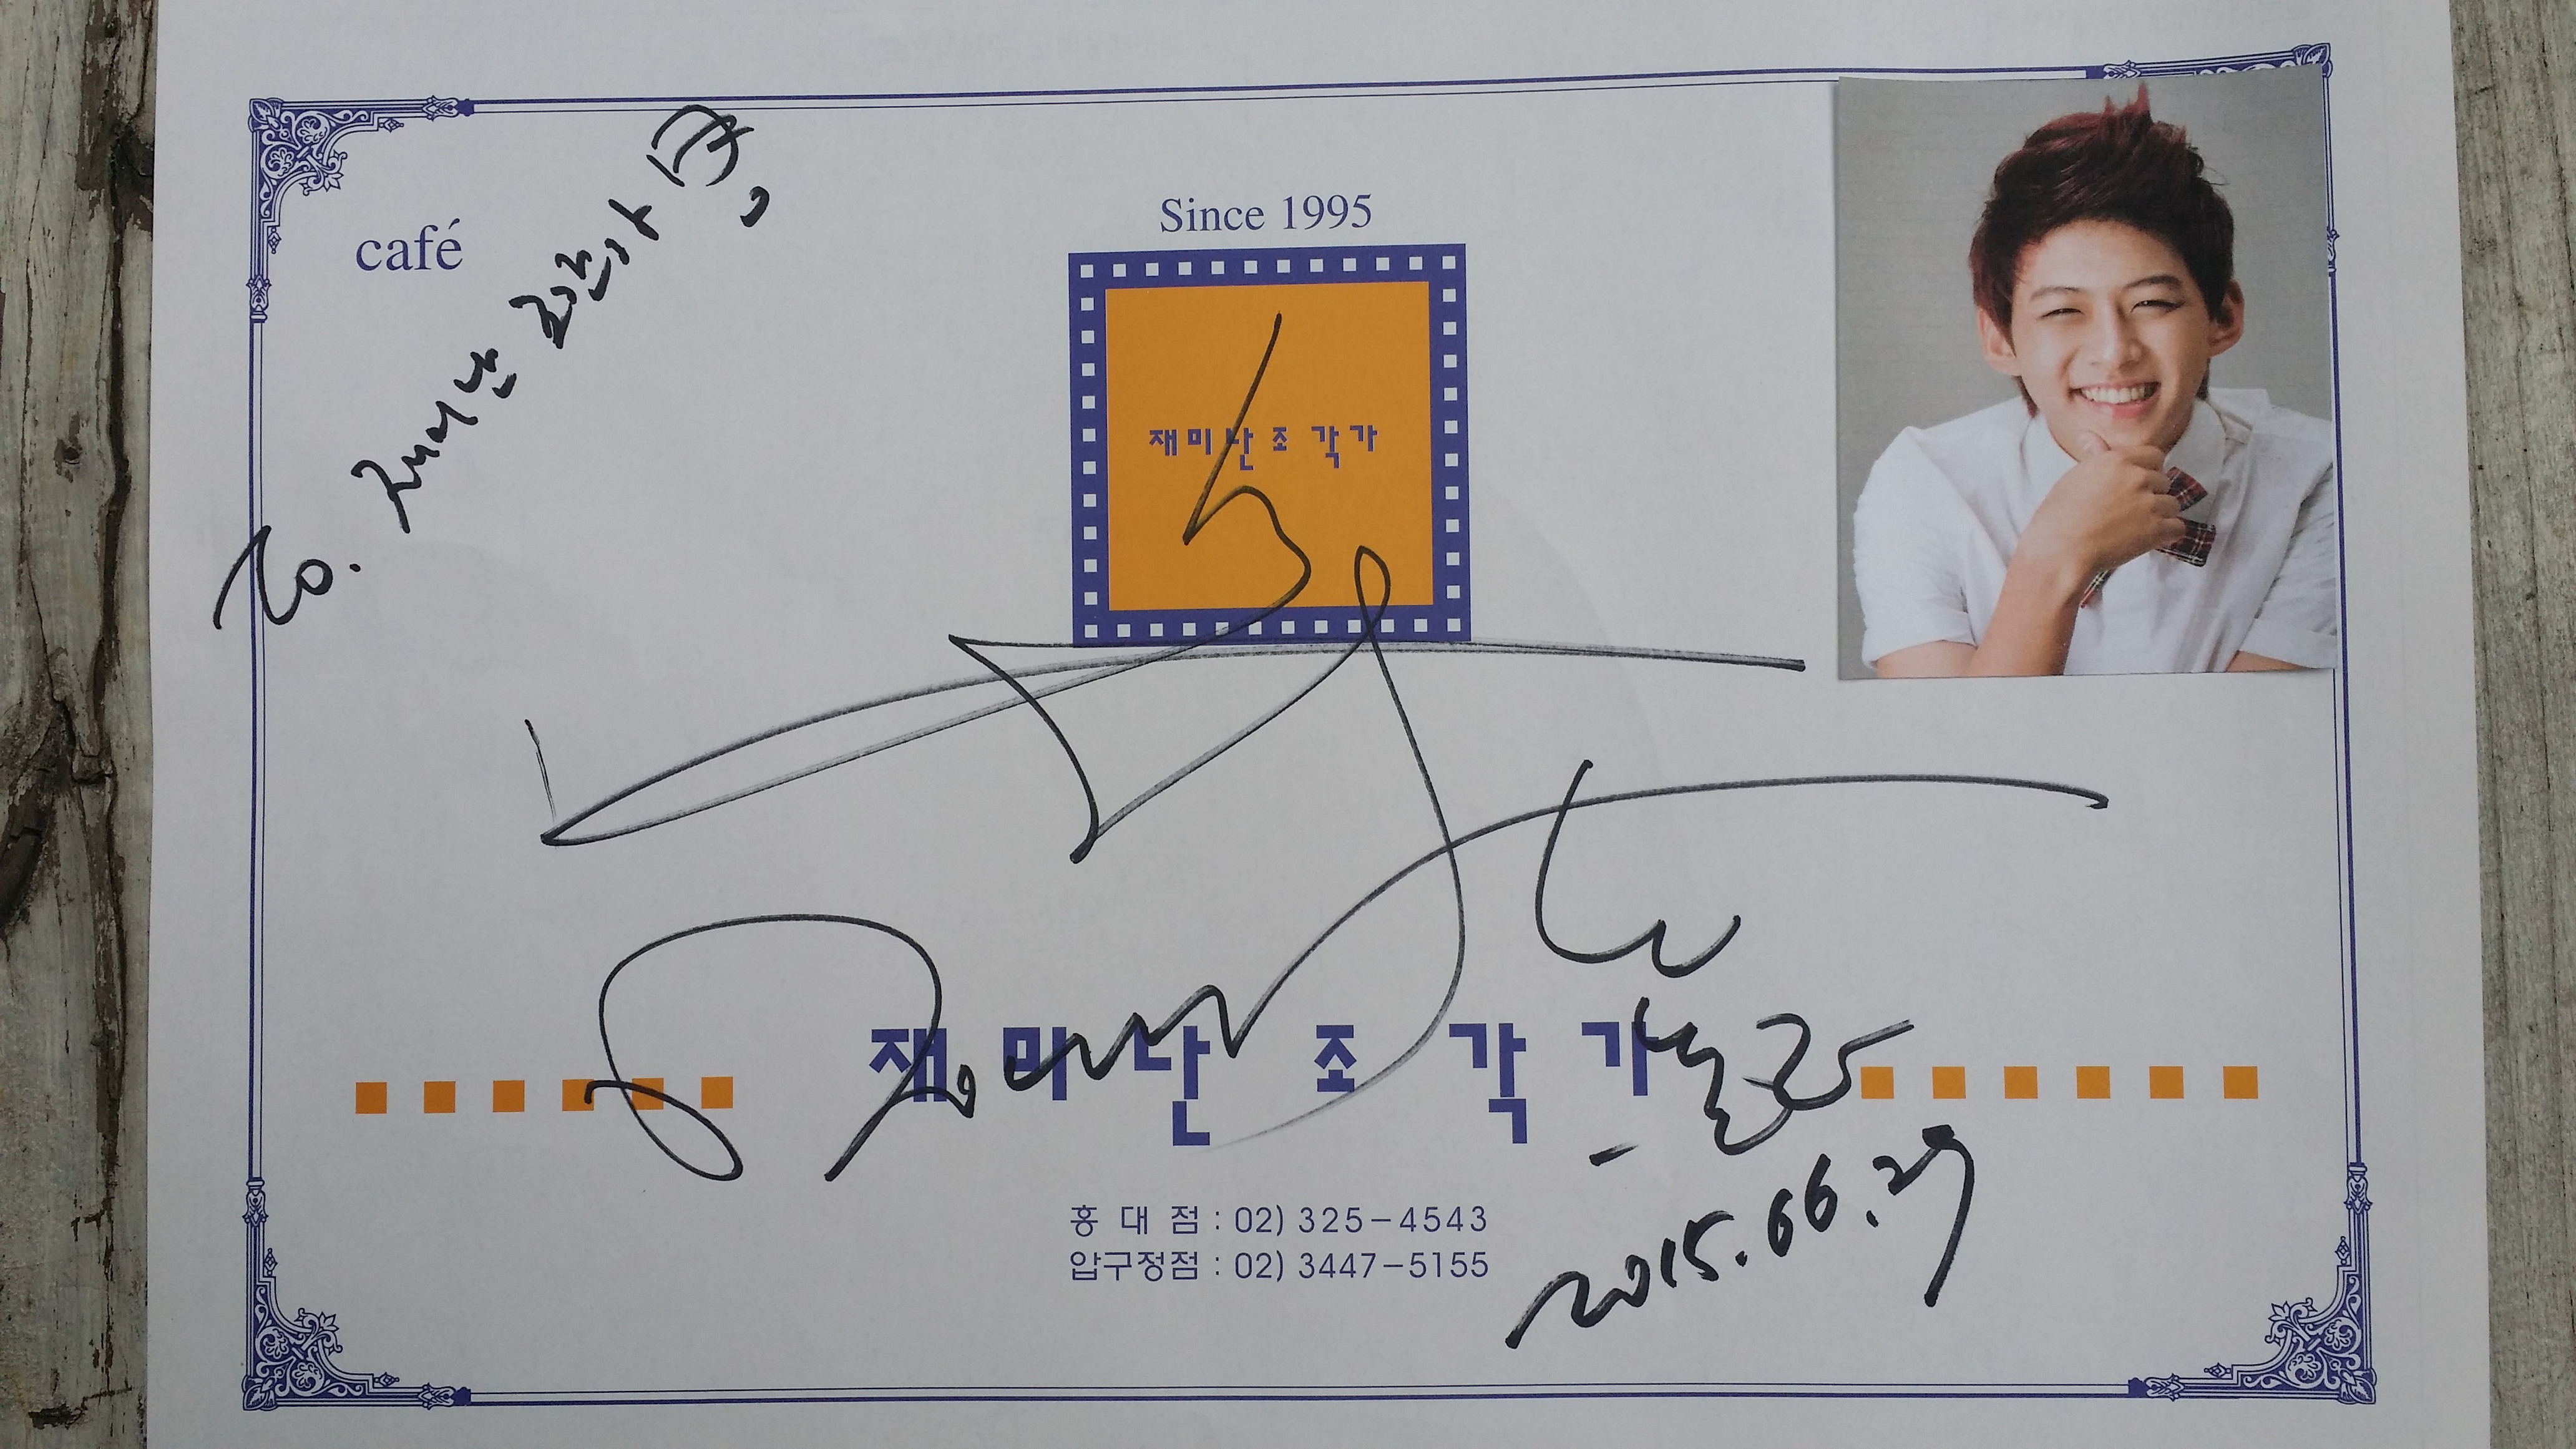 To. 재미난 조각가
café
Since 1995
재미난조각가
재미난 조각가
홍대점 : 02) 325-4543
압구정점 : 02) 3447-5155
2015.06.29